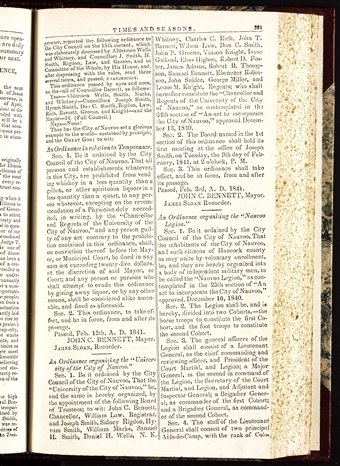 TIMES AND SEASONS.
321
perance, reported the following ordinance to
the City Council on the 15th instant, which
was elaborately discussed by Aldermen Wells
and Whitney, and Councillors J. Smith, H.
Smith, Rigdon, Law, and Greene, and in
Committee of the Whole, by His Honor, and,
after dispensing with the rules, read three
several times, and passed, UNANIMOUSLY.
This ordinance passed by ayes and noes,
on the call of Councillor Barnett, as follows:
Yeas—Aldermen Wells, Smith, Marks,
and Whitney—Councillors Joseph Smith,
Hyrum Smith, Don C. Smith, Rigdon, Law,
Rich, Barnett, Greene, and Knight—and the
Mayor—14. (Full Council.)
Nays—None!
Thus has the City of Nauvoo set a glorious
example to the world—sustained by principle,
and the GREAT GOD; to wit:
An Ordinance in relation to Temperance.
Sec. 1. Be it ordained by the City
Council of the City of Nauvoo, That all
persons and establishments whatever,
in this City, are prohibited from vend-
ing whiskey in a less quantity than a
gallon, or other spirituous liquors in a
less quantity than a quart, to any per-
son whatever, excepting on the recom-
mendation of a Physician duly accred-
ited, in writing, by the "Chancellor
and Regents of the University of the
City of Nauvoo," and any person guil-
ty of any act contrary to the prohibi-
tion contained in this ordinance, shall,
on conviction thereof before the May-
or, or Municipal Court, be fined in any
sum not exceeding twenty-five dollars,
at the discretion of said Mayor, or
Court; and any person or persons who
shall attempt to evade this ordinance
by giving away liquor, or by any other
means, shall be considered alike amena-
ble, and fined as aforesaid.
Sec. 2. This ordinance, to take ef-
fect, and be in force, from and after its
passage.
Passed, Feb. 15th, A. D. 1841.
JOHN C. BENNETT, Mayor.
James Sloan, Recorder.
An Ordinance organizing the "Univer-
sity of the City of Nauvoo."
Sec. 1. Be it ordained by the City
Council of the City of Nauvoo, That the
"University of the City of Nauvoo," be,
and the same is hereby organized, by
the appointment of the following Board
of Trustees; to wit: John C. Bennett,
Chancellor, William Law, Registrar,
and Joseph Smith, Sidney Rigdon, Hy-
rum Smith, William Marks, Samuel
H. Smith, Daniel H. Wells, N. K.
Whitney, Charles C. Rich, John T.
Barnett, Wilson Law, Don C. Smith,
John P. Greene, Vinson Knight, Isaac
Galland, Elias Higbee, Robert D. Fos-
ter, James Adams, Robert B. Thomp-
son, Samuel Bennett, Ebenezer Robin-
son, John Snider, George Miller, and
Lenos M. Knight, Regents; who shall
hereafter constitute the "Chancellor and
Regents of the University of the City
of Nauvoo," as contemplated in the
24th section of "An act to incorporate
the City of Nauvoo," approved Decem-
ber 16, 1840.
Sec. 2. The Board named in the 1st
section of this ordinance shall hold its
first meeting at the office of Joseph
Smith, on Tuesday, the 9th day of Feb-
ruary, 1841, at 2 o'clock, P. M.
Sec. 3. This ordinance shall take
effect, and be in force, from and after
its passage.
Passed, Feb. 3rd, A. D. 1841.
JOHN C. BENNETT, Mayor.
James Sloan Recorder.
An Ordinance organizing the "Nauvoo
Legion."
Sec. 1. Be it ordained by the City
Council of the City of Nauvoo, That
the inhabitants of the City of Nauvoo,
and such citizens of Hancock county
as may unite by voluntary enrollment,
be, and they are hereby organized into
a body of independent military men, to
be called the "Nauvoo Legion," as con-
templated in the 25th section of "An
act to incorporate the City of Nauvoo,"
approved, December 16, 1840.
Sec. 2. The Legion shall be, and is
hereby, divided into two Cohorts,—the
horse troops to constitute the first Co-
hort, and the foot troops to constitute
the second Cohort.
Sec. 3. The general officers of the
Legion shall consist of a Lieutenant
General, as the chief commanding and
reviewing officer, and President of the
Court Martial, and Legion; a Major
General, as the second in command of
the Legion, the Secretary of the Court
Martial, and Legion, and Adjutant and
Inspector General; a Brigadier Gener-
al, as commander of the first Cohort;
and a Brigadier General, as command-
er of the second Cohort.
Sec. 4. The staff of the Lieutenant
General shall consist of two principal
Aids-de-Camp, with the rank of Colo-